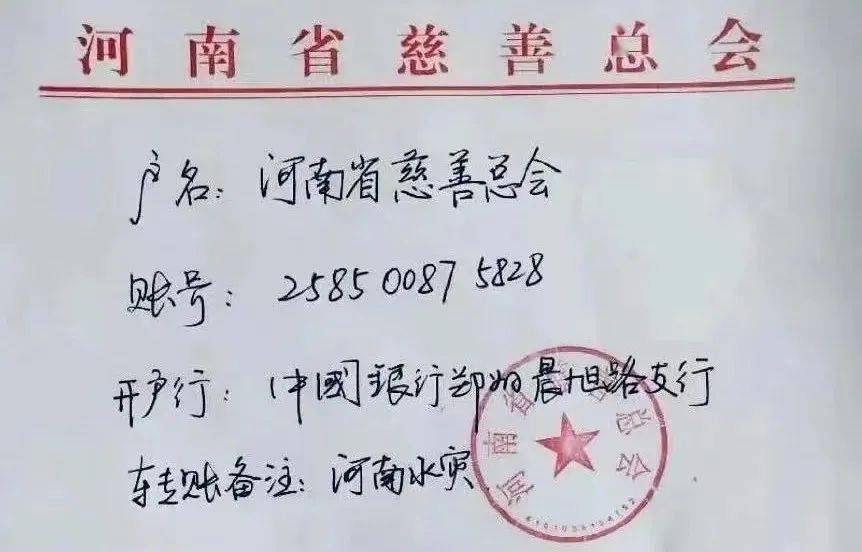 河南省慈善总会
户名：河南省慈善总会
账号：2585 0087 5828
开户行：中國銀行郑州晨旭路支行
转账备注：河南水灾
河南省慈善总会